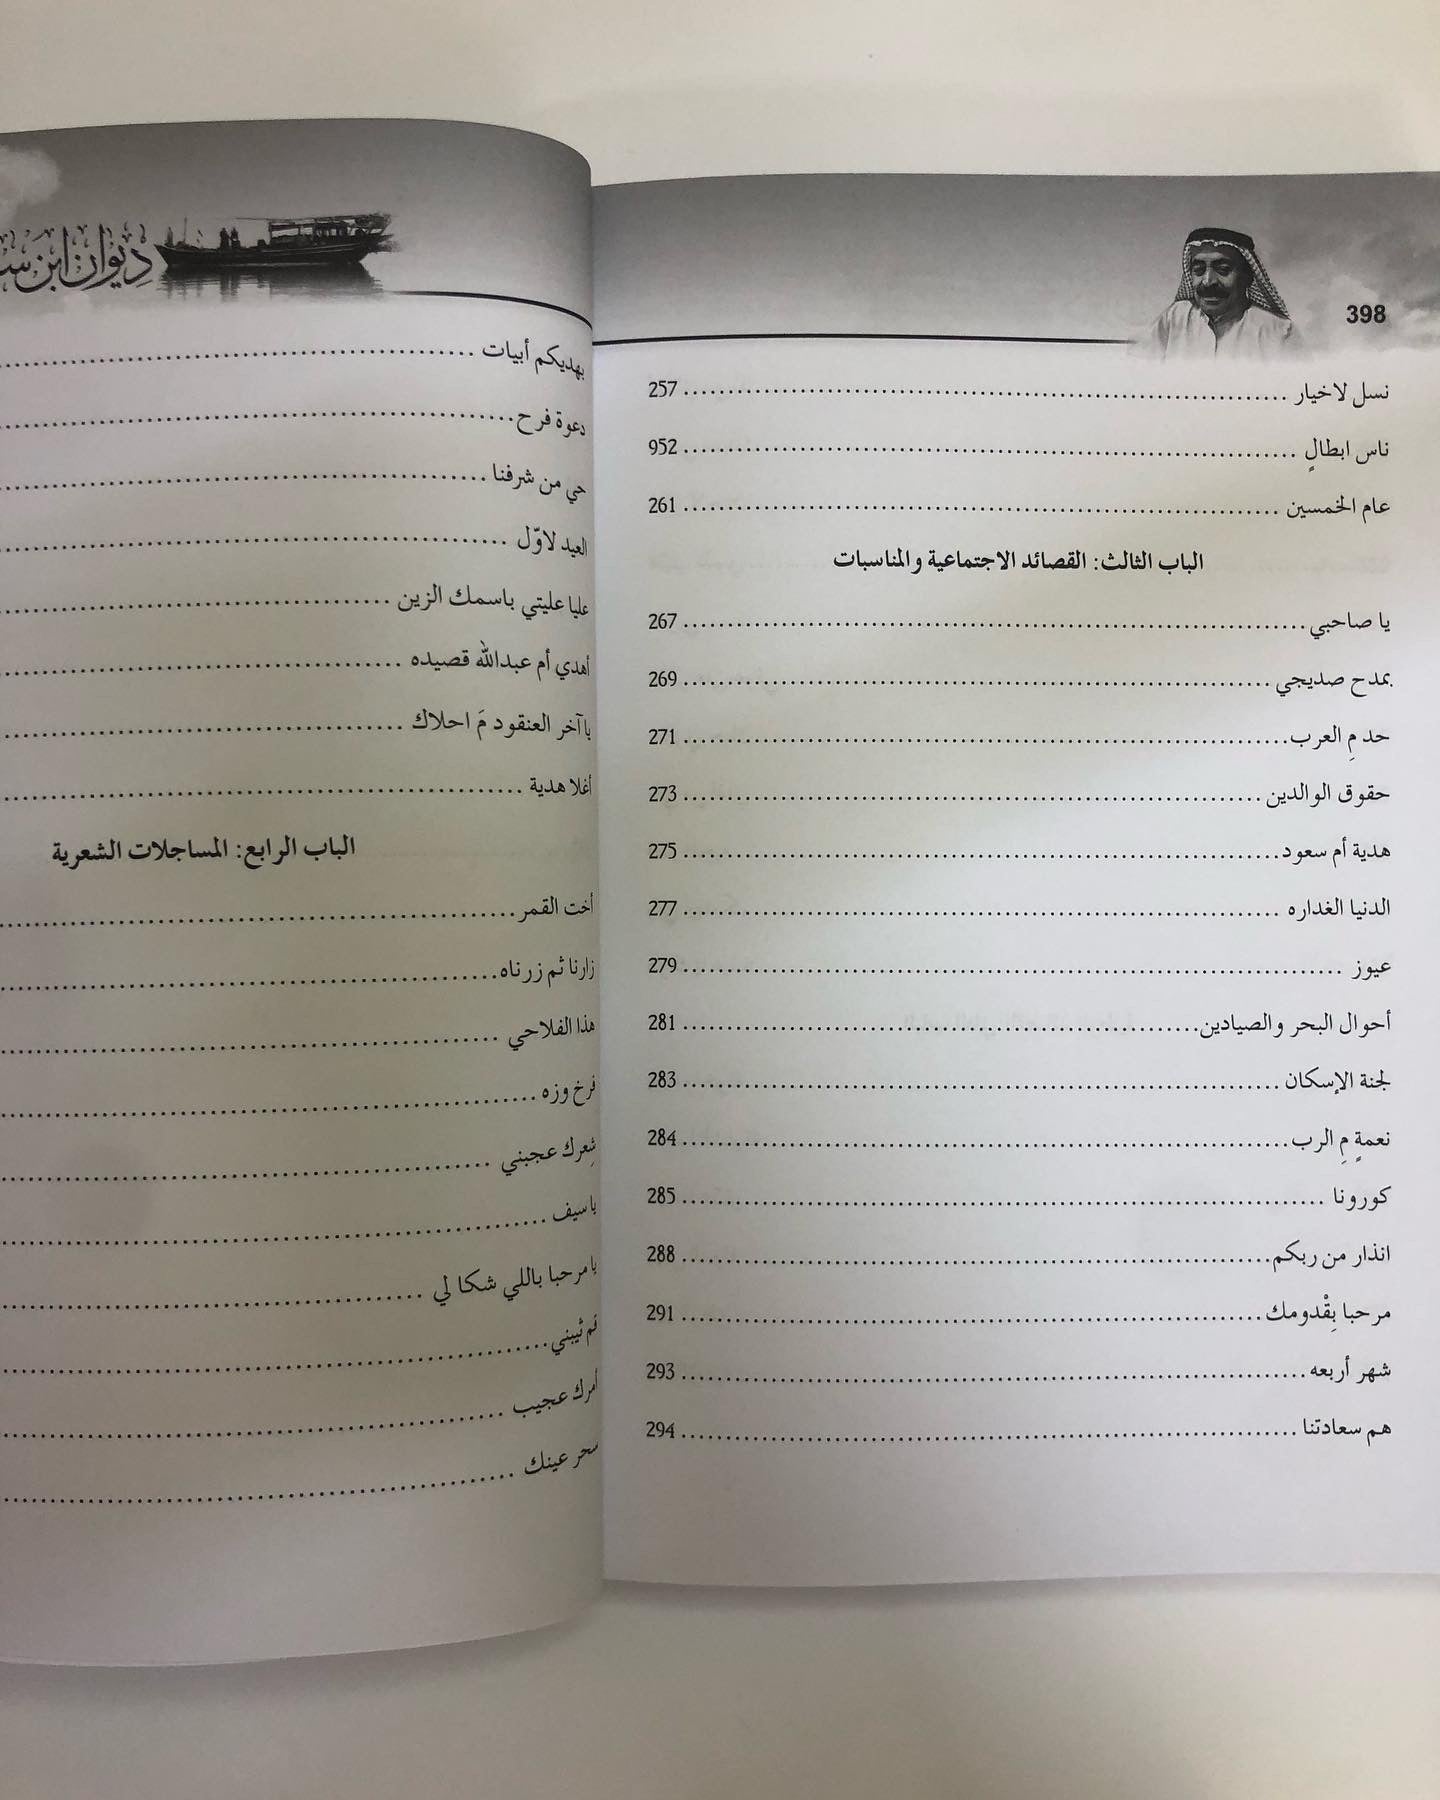 398
نسل لاخيار 257
ناس ابطالٍ 952
عام الخمسين 261
الباب الثالث: القصائد الاجتماعية والمناسبات
يا صاحبي 267
بمدح صديجي 269
حد مِ العرب 271
حقوق الوالدين 273
هدية أم سعود 275
الدنيا الغداره 277
عيوز 279
أحوال البحر والصيادين 281
لجنة الإسكان 283
نعمةٍ مِ الرب 284
كورونا 285
انذار من ربكم 288
مرحبا بِقْدومك 291
شهر أربعه 293
هم سعادتنا 294
ديوان ابن
بهديكم أبيات
دعوة فرح
حي من شرفنا
العيد لاوّل
عليا عليتي باسمك الزين
أهدي أم عبدالله قصيده
يا آخر العنقود مَ احلاك
أغلا هدية
الباب الرابع: المساجلات الشعرية
أخت القمر
زارنا ثم زرناه
هذا الفلاحي
فرخ وزه
شِعرك عجبني
يا سيف
يا مرحبا باللي شكا لي
قم ثيبني
أمرك عجيب
سحر عينك